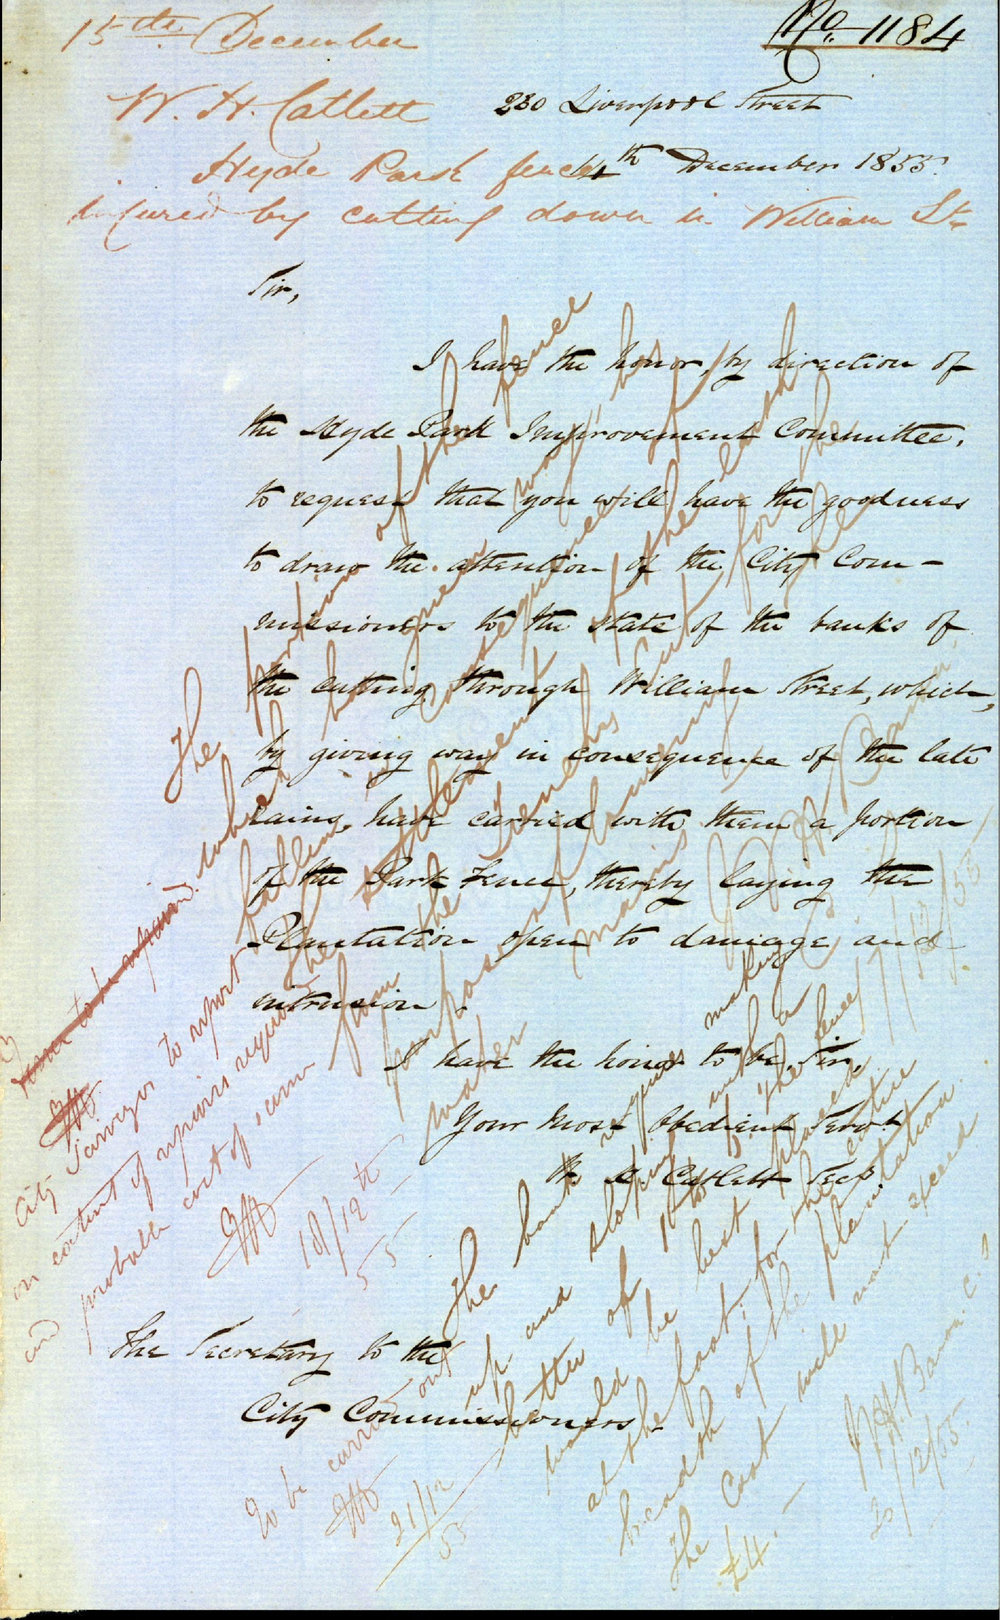 15th December
No. 1184
W. H. Catlett
230 Liverpool Street
Hyde Park fence
14th December 1855.
injured by cutting down in William St.
Sir,
I have the honor, by direction of
the Hyde Park Improvement Committee,
to request that you will have the goodness
to draw the attention of the City Com-
missioners to the state of the banks of
the cutting through William Street, which,
by giving way in consequence of the late
rains, have carried with them a portion
of the Park Fence, thereby laying the
Plantation open to damage and
intrusion.
I have the honor to be, Sir,
Your Most Obedient Servt
W. H. Catlett Secy.
The Secretary to the
City Commissioners
The portion of the fence
which has given way, has
fallen in consequence of
the settlement of the earth
from the Trenches cut for the
purpose of burning the
water mains
17/12/55.
City Surveyor to report
on extent of repairs required
and probable cost of same
18/12th
55
The bank requires making
up and sloping with a
batter of 1 to 1. The fence
would be best placed
at the foot; for the entire
breadth of the plantation.
The Cost will not exceed
£4.—
20/12/55
To be carried out
21/12
55